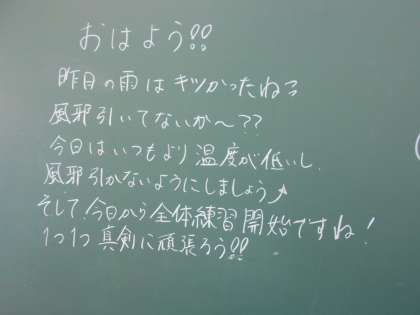 おはよう!!
昨日の雨はキツかったねぇ
風邪引いてないか〜??
今日はいつもより温度が低いし、
風邪引かないようにしましょう♪
そして、今日から全体練習開始ですね!
1つ1つ真剣に頑張ろう!!